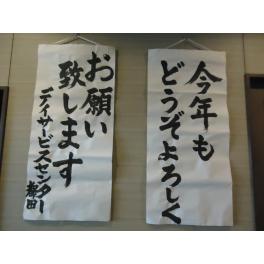 今年も
どうぞよろしく
お願い
致します
デイサービスセンター